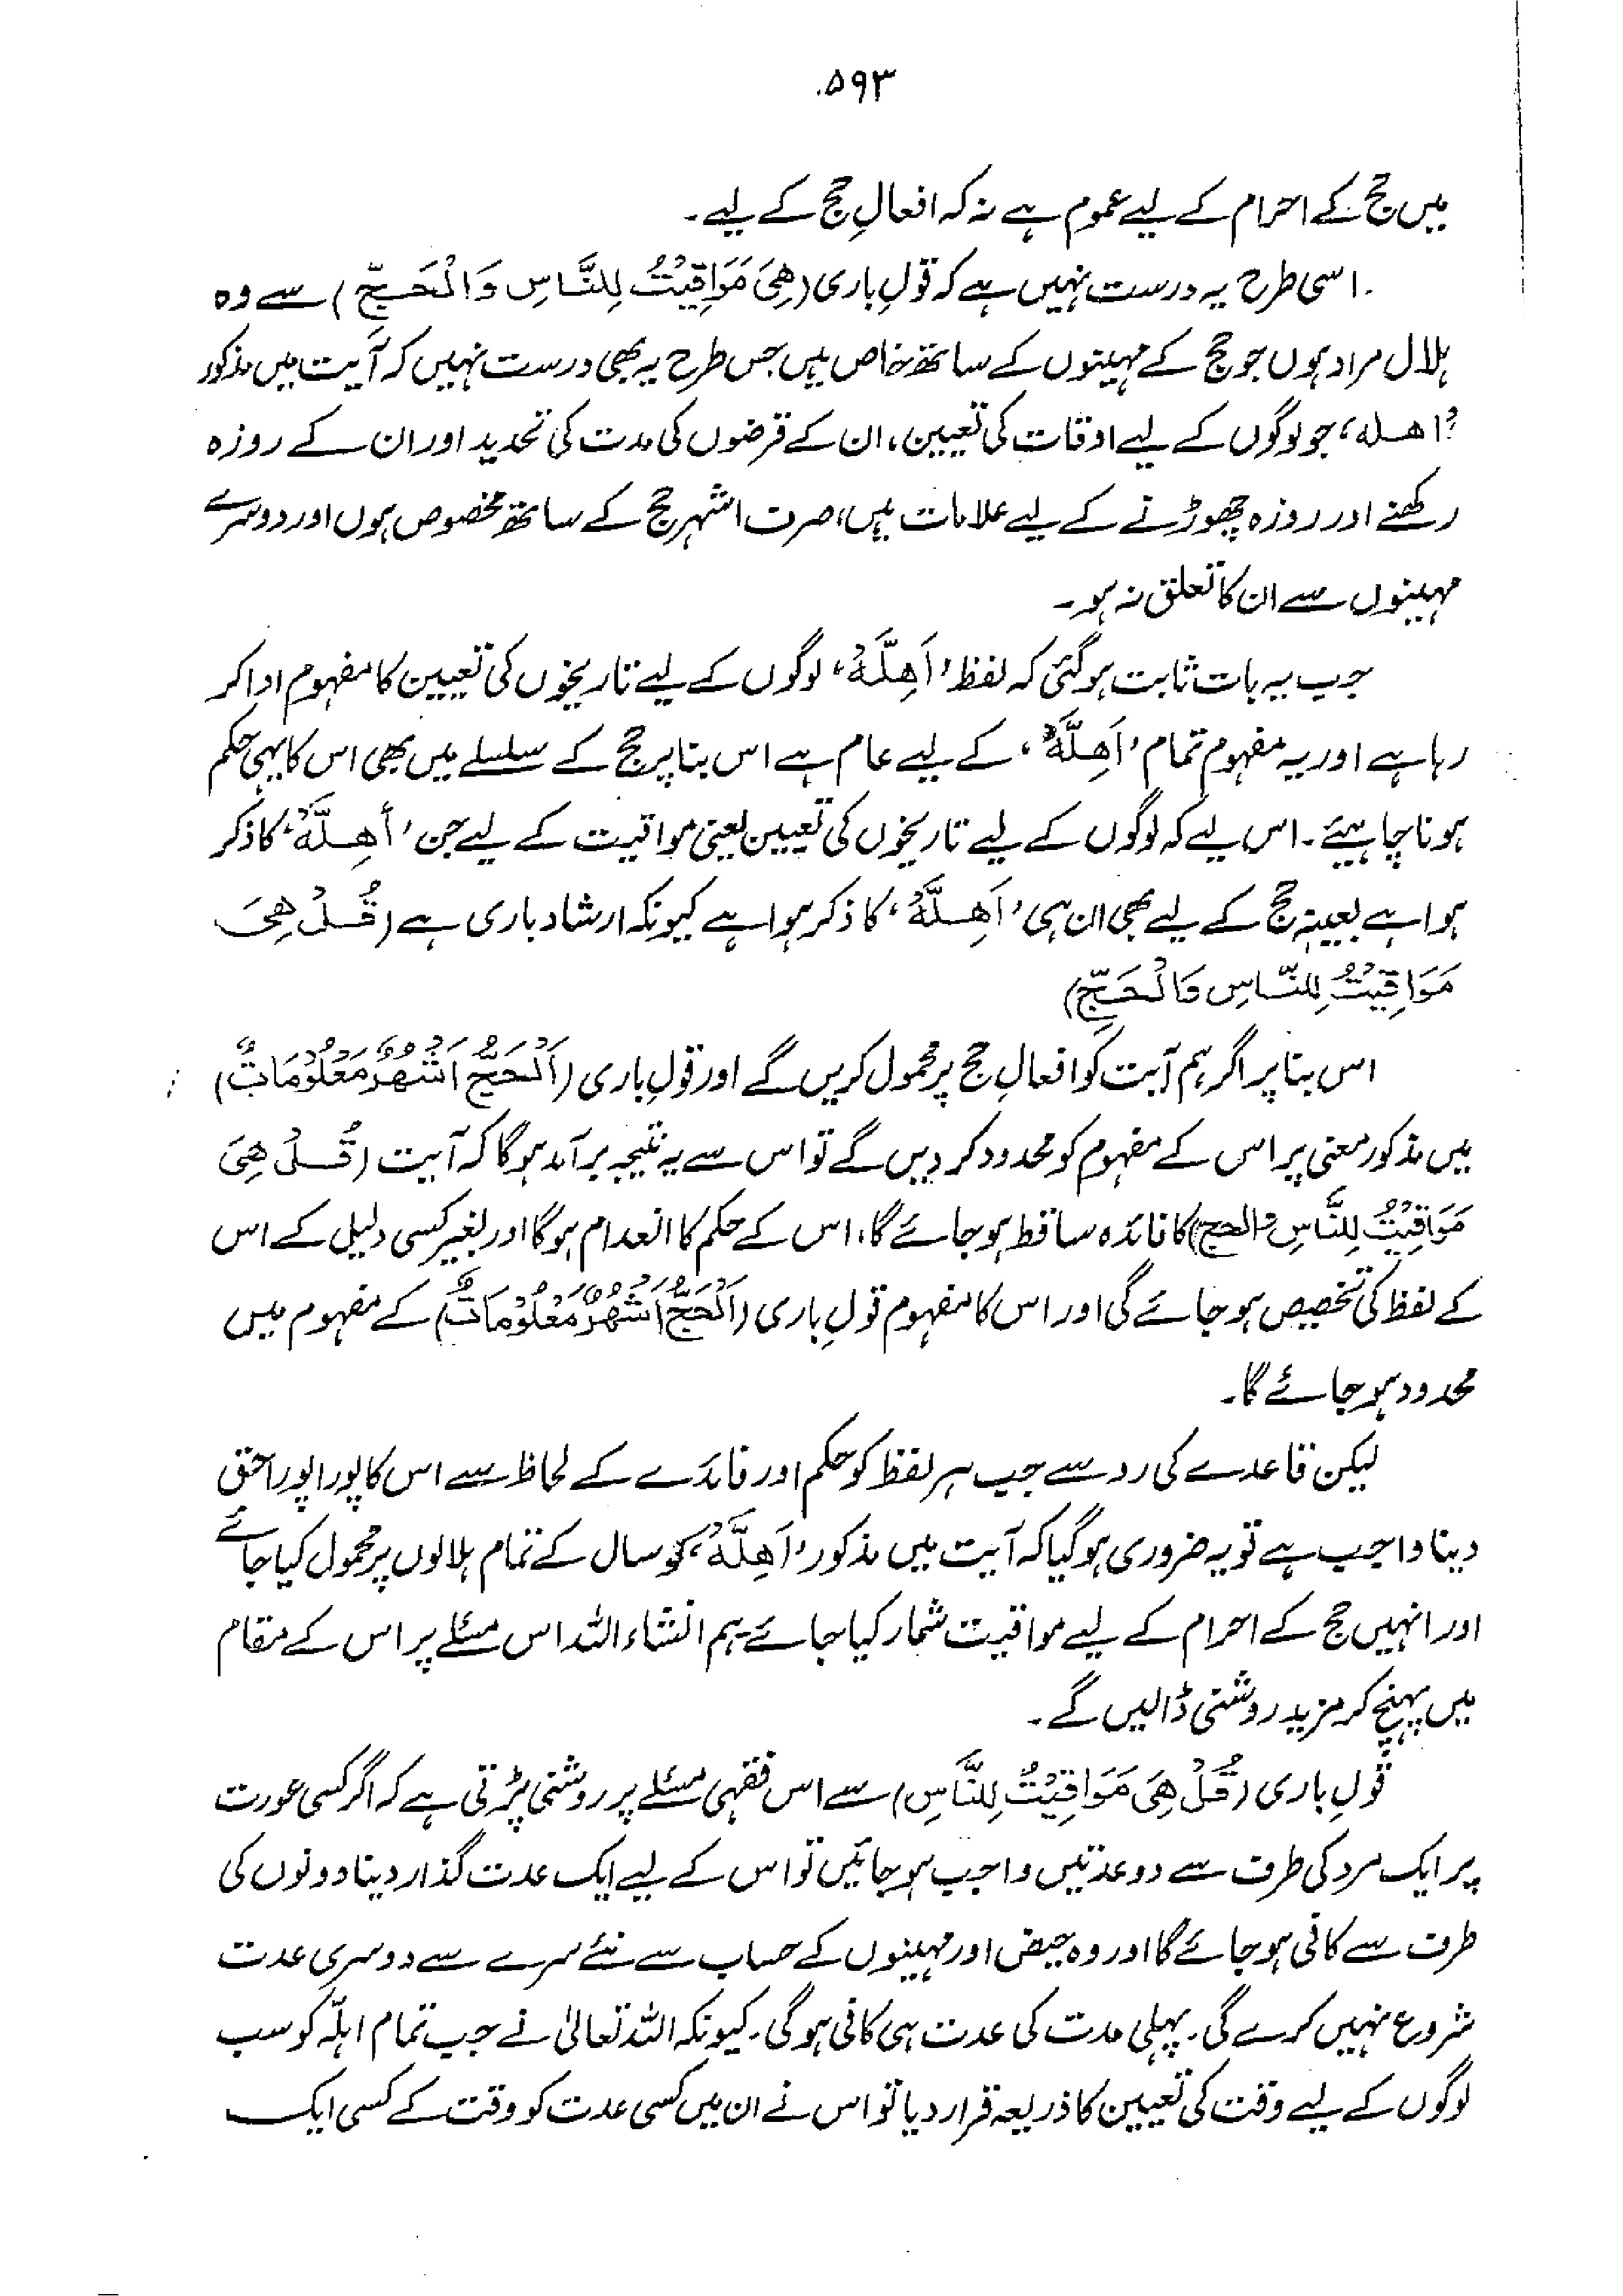 ۵۹۳
میں حج کے احرام کے لیے عموم ہے نہ کہ افعالِ حج کے لیے۔
اسی طرح یہ درست نہیں ہے کہ قولِ باری (هِيَ مَوَاقِيْتُ لِلنَّاسِ وَالْحَجِّ) سے وہ
ہلال مراد ہوں جو حج کے مہینوں کے ساتھ خاص ہیں جس طرح یہ بھی درست نہیں کہ آیت میں مذکور
'اھلہ' جو لوگوں کے لیے اوقات کی تعیین، ان کے قرضوں کی مدت کی تحدید اور ان کے روزہ
رکھنے اور روزہ چھوڑنے کے لیے علامات ہیں، صرف اشہر حج کے ساتھ مخصوص ہوں اور دوسرے
مہینوں سے ان کا تعلق نہ ہو۔
جب یہ بات ثابت ہو گئی کہ لفظ 'اَهِلَّةُ' لوگوں کے لیے تاریخوں کی تعیین کا مفہوم ادا کر
رہا ہے اور یہ مفہوم تمام 'اَهِلَّةُ' کے لیے عام ہے اس بنا پر حج کے سلسلے میں بھی اس کا یہی حکم
ہونا چاہیئے۔ اس لیے کہ لوگوں کے لیے تاریخوں کی تعیین یعنی مواقیت کے لیے جن 'أَهِلَّةُ' کا ذکر
ہوا ہے بعینہٖ حج کے لیے بھی ان ہی 'اَهِلَّةُ' کا ذکر ہوا ہے کیونکہ ارشاد باری ہے (قُلْ هِيَ
مَوَاقِيْتُ لِلنَّاسِ وَالْحَجِّ)
اس بنا پر اگر ہم آیت کو افعالِ حج پر محمول کریں گے اور قولِ باری (اَلْحَجُّ اَشْهُرٌ مَّعْلُوْمَاتٌ)
میں مذکور معنی پر اس کے مفہوم کو محدود کر دیں گے تو اس سے یہ نتیجہ برآمد ہوگا کہ آیت (قُلْ هِيَ
مَوَاقِيْتُ لِلنَّاسِ والحج) کا فائدہ ساقط ہو جائے گا، اس کے حکم کا انعدام ہوگا اور بغیر کسی دلیل کے اس
کے لفظ کی تخصیص ہو جائے گی اور اس کا مفہوم قولِ باری (اَلْحَجُّ اَشْهُرٌ مَّعْلُوْمَاتٌ) کے مفہوم میں
محدود ہو جائے گا۔
لیکن قاعدے کی رو سے جب ہر لفظ کو حکم اور فائدے کے لحاظ سے اس کا پورا پورا حق
دینا واجب ہے تو یہ ضروری ہو گیا کہ آیت میں مذکور 'اَهِلَّةُ' کو سال کے تمام ہلالوں پر محمول کیا جائے
اور انہیں حج کے احرام کے لیے مواقیت شمار کیا جائے۔ ہم انشاء اللہ اس مسئلے پر اس کے مقام
میں پہنچ کر مزید روشنی ڈالیں گے۔
قولِ باری (قُلْ هِيَ مَوَاقِيْتُ لِلنَّاسِ) سے اس فقہی مسئلے پر روشنی پڑتی ہے کہ اگر کسی عورت
پر ایک مرد کی طرف سے دو عدتیں واجب ہو جائیں تو اس کے لیے ایک عدت گذار دینا دونوں کی
طرف سے کافی ہو جائے گا اور وہ حیض اور مہینوں کے حساب سے نئے سرے سے دوسری عدت
شروع نہیں کرے گی۔ پہلی مدت کی عدت ہی کافی ہوگی۔ کیونکہ اللہ تعالیٰ نے جب تمام اہلّہ کو سب
لوگوں کے لیے وقت کی تعیین کا ذریعہ قرار دیا تو اس نے ان میں کسی عدت کو وقت کے کسی ایک